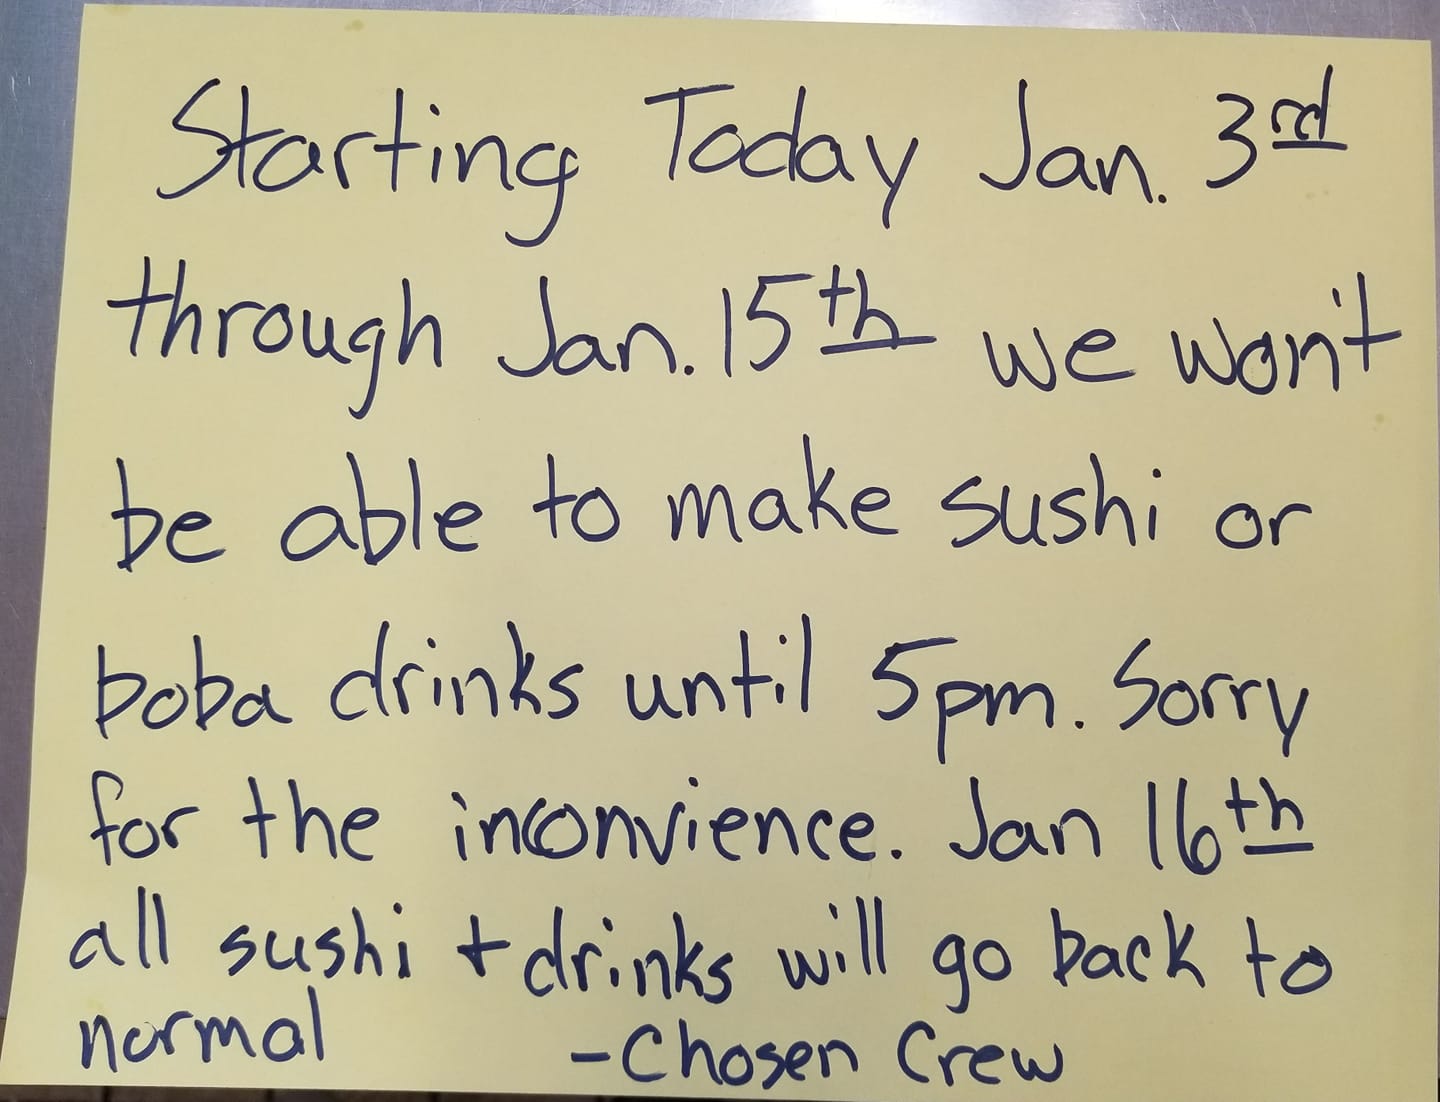 Starting Today Jan. 3rd
through Jan. 15th we won't
be able to make sushi or
boba drinks until 5pm. Sorry
for the inconvience. Jan 16th
all sushi + drinks will go back to
normal -Chosen Crew